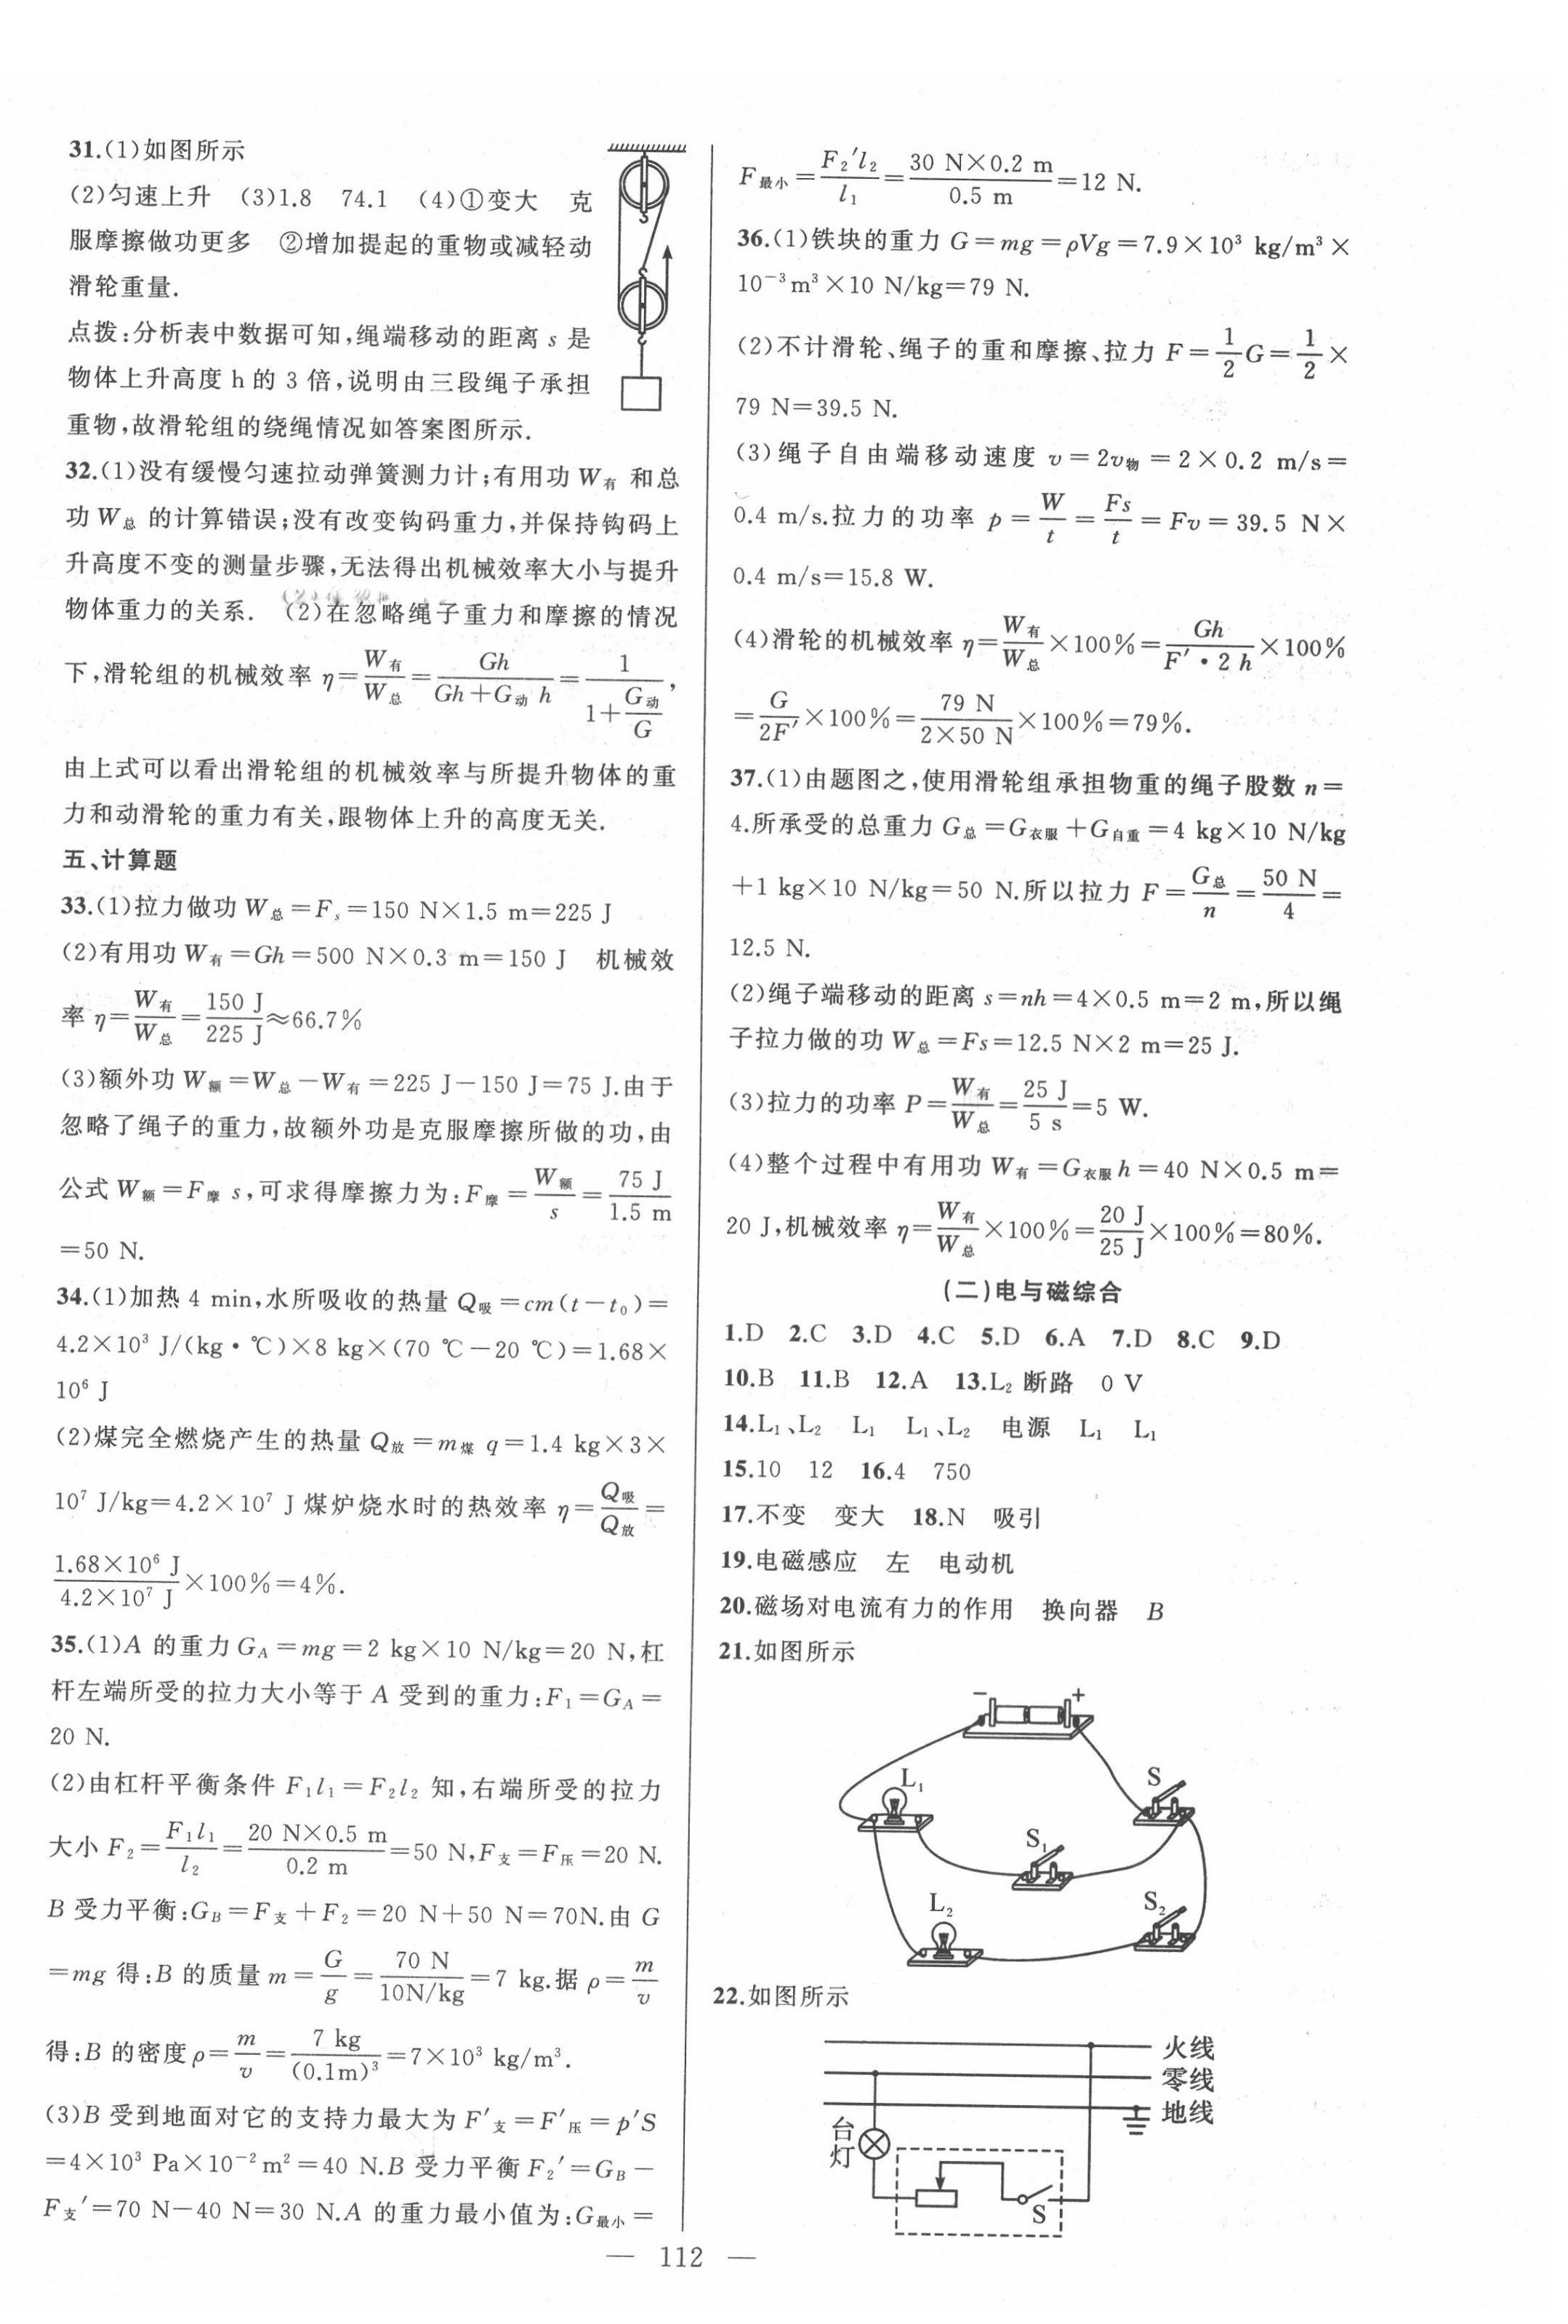 31.(1)如图所示
(2)匀速上升 (3)1.8 74.1 (4)①变大 克
服摩擦做功更多 ②增加提起的重物或减轻动
滑轮重量.
点拨:分析表中数据可知,绳端移动的距离 s 是
物体上升高度 h 的 3 倍,说明由三段绳子承担
重物,故滑轮组的绕绳情况如答案图所示.
32.(1)没有缓慢匀速拉动弹簧测力计;有用功 W有 和总
功 W总 的计算错误;没有改变钩码重力,并保持钩码上
升高度不变的测量步骤,无法得出机械效率大小与提升
物体重力的关系. (2)在忽略绳子重力和摩擦的情况
下,滑轮组的机械效率 η=W有/W总=Gh/(Gh+G动 h)=1/(1+G动/G),
由上式可以看出滑轮组的机械效率与所提升物体的重
力和动滑轮的重力有关,跟物体上升的高度无关.
五、计算题
33.(1)拉力做功 W总=Fs=150 N×1.5 m=225 J
(2)有用功 W有=Gh=500 N×0.3 m=150 J 机械效
率 η=W有/W总=150 J/225 J≈66.7%
(3)额外功 W额=W总-W有=225 J-150 J=75 J.由于
忽略了绳子的重力,故额外功是克服摩擦所做的功,由
公式 W额=F摩 s,可求得摩擦力为:F摩=W额/s=75 J/1.5 m
=50 N.
34.(1)加热 4 min,水所吸收的热量 Q吸=cm(t-t₀)=
4.2×10³ J/(kg·℃)×8 kg×(70 ℃-20 ℃)=1.68×
10⁶ J
(2)煤完全燃烧产生的热量 Q放=m煤 q=1.4 kg×3×
10⁷ J/kg=4.2×10⁷ J 煤炉烧水时的热效率 η=Q吸/Q放=
1.68×10⁶ J/4.2×10⁷ J×100%=4%.
35.(1)A 的重力 G_A=mg=2 kg×10 N/kg=20 N,杠
杆左端所受的拉力大小等于 A 受到的重力:F₁=G_A=
20 N.
(2)由杠杆平衡条件 F₁l₁=F₂l₂ 知,右端所受的拉力
大小 F₂=F₁l₁/l₂=20 N×0.5 m/0.2 m=50 N,F支=F压=20 N.
B 受力平衡:G_B=F支+F₂=20 N+50 N=70N.由 G
=mg 得:B 的质量 m=G/g=70 N/10N/kg=7 kg.据 ρ=m/v
得:B 的密度 ρ=m/v=7 kg/(0.1m)³=7×10³ kg/m³.
(3)B 受到地面对它的支持力最大为 F′支=F′压=p′S
=4×10³ Pa×10⁻² m²=40 N.B 受力平衡 F₂′=G_B-
F支′=70 N-40 N=30 N.A 的重力最小值为:G最小=
F最小=F₂′l₂/l₁=30 N×0.2 m/0.5 m=12 N.
36.(1)铁块的重力 G=mg=ρVg=7.9×10³ kg/m³×
10⁻³m³×10 N/kg=79 N.
(2)不计滑轮、绳子的重和摩擦、拉力 F=1/2G=1/2×
79 N=39.5 N.
(3)绳子自由端移动速度 v=2v物=2×0.2 m/s=
0.4 m/s.拉力的功率 p=W/t=Fs/t=Fv=39.5 N×
0.4 m/s=15.8 W.
(4)滑轮的机械效率 η=W有/W总×100%=Gh/F′·2 h×100%
=G/2F′×100%=79 N/2×50 N×100%=79%.
37.(1)由题图之,使用滑轮组承担物重的绳子股数 n=
4.所承受的总重力 G总=G衣服+G自重=4 kg×10 N/kg
+1 kg×10 N/kg=50 N.所以拉力 F=G总/n=50 N/4=
12.5 N.
(2)绳子端移动的距离 s=nh=4×0.5 m=2 m,所以绳
子拉力做的功 W总=Fs=12.5 N×2 m=25 J.
(3)拉力的功率 P=W有/W总=25 J/5 s=5 W.
(4)整个过程中有用功 W有=G衣服 h=40 N×0.5 m=
20 J,机械效率 η=W有/W总×100%=20 J/25 J×100%=80%.
(二)电与磁综合
1.D 2.C 3.D 4.C 5.D 6.A 7.D 8.C 9.D
10.B 11.B 12.A 13.L₂ 断路 0 V
14.L₁、L₂ L₁ L₁、L₂ 电源 L₁ L₁
15.10 12 16.4 750
17.不变 变大 18.N 吸引
19.电磁感应 左 电动机
20.磁场对电流有力的作用 换向器 B
21.如图所示
- +
L₁ S
S₁
L₂ S₂
22.如图所示
火线
零线
地线
台灯
S
— 112 —